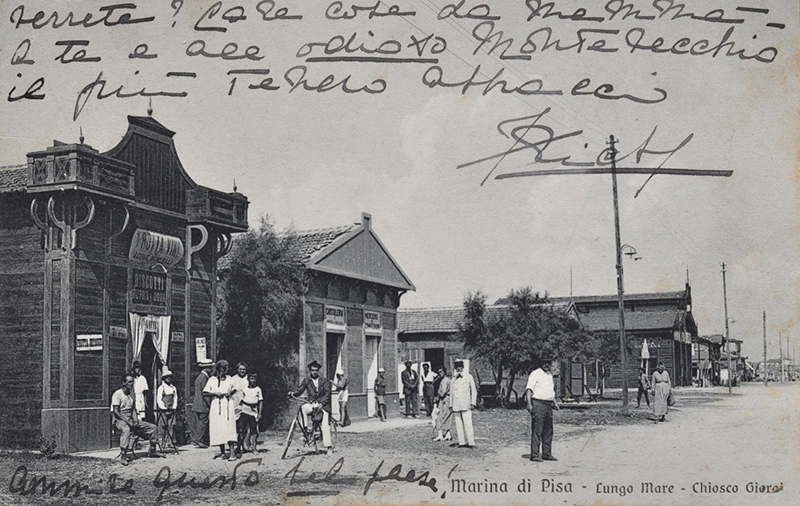 verrete? Care cose da Mamma –
a te e all' odioso Montevecchio
il più tenero abbracci
BISCOTTI
CARTOLERIA
MERCERIE
Ammira questo bel paese!
Marina di Pisa - Lungo Mare - Chiosco Giorgi